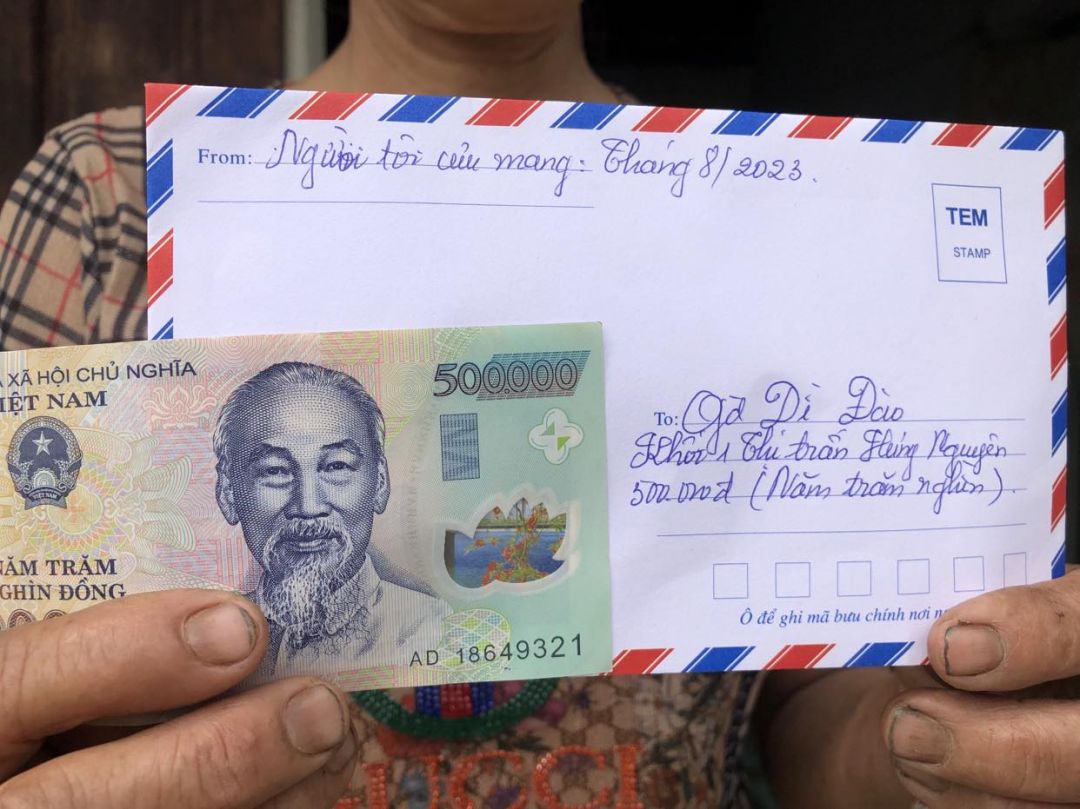 From: Người tôi cưu mang: Tháng 8/2023.
TEM
STAMP
A XÃ HỘI CHỦ NGHĨA
IỆT NAM
500.000
VIỆT NAM
To: Gđ Dì Đào
Khối 1 Thị trấn Hưng Nguyên
500.000đ (Năm trăm nghìn).
ĂM TRĂM
GHÌN ĐỒNG
AD 18649321
Ô để ghi mã bưu chính nơi